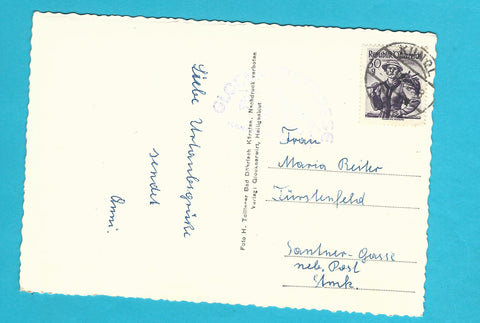 Liebe Urlaubsgrüße
sendet
Omi.
Foto H. Tollinger Bad Döllach Kärnten, Nachdruck verboten
Verlag: Glocknerwirt, Heiligenblut
REPUBLIK ÖSTERREICH
KUNDL
Frau
Maria Reiter
Fürstenfeld
Santner-Gasse
neb. Post
Stmk.